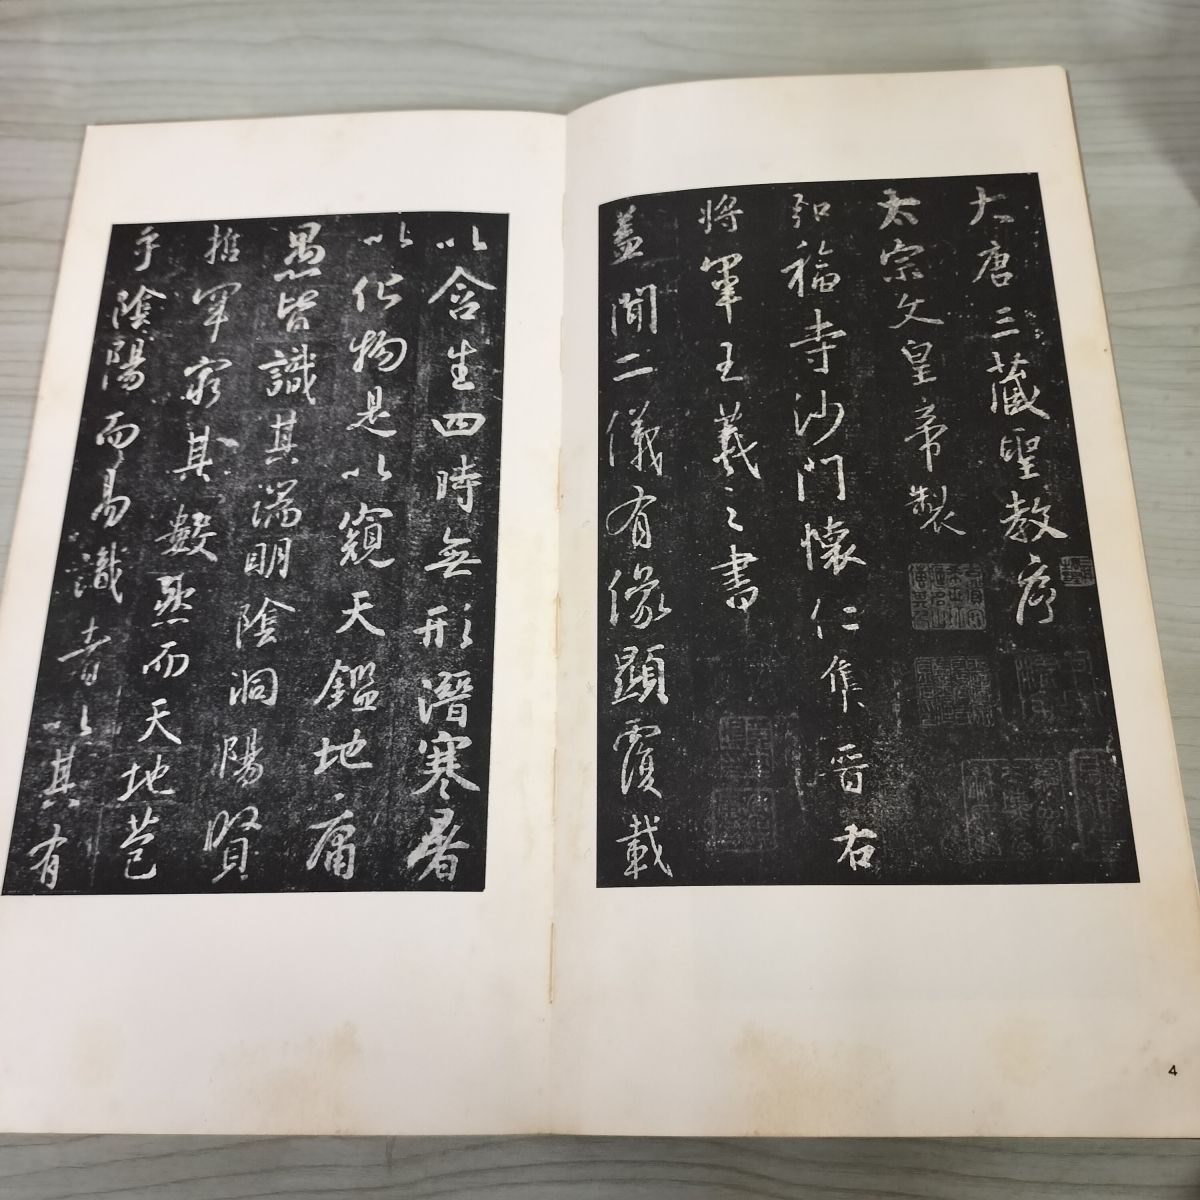 大唐三藏聖教序
太宗文皇帝製
弘福寺沙門懷仁集晉右
將軍王羲之書
蓋聞二儀有像顯覆載
以含生四時無形潛寒暑
以化物是以窺天鑑地庸
愚皆識其端明陰洞陽賢
哲罕窮其數然而天地苞
乎陰陽而易識者以其有
4